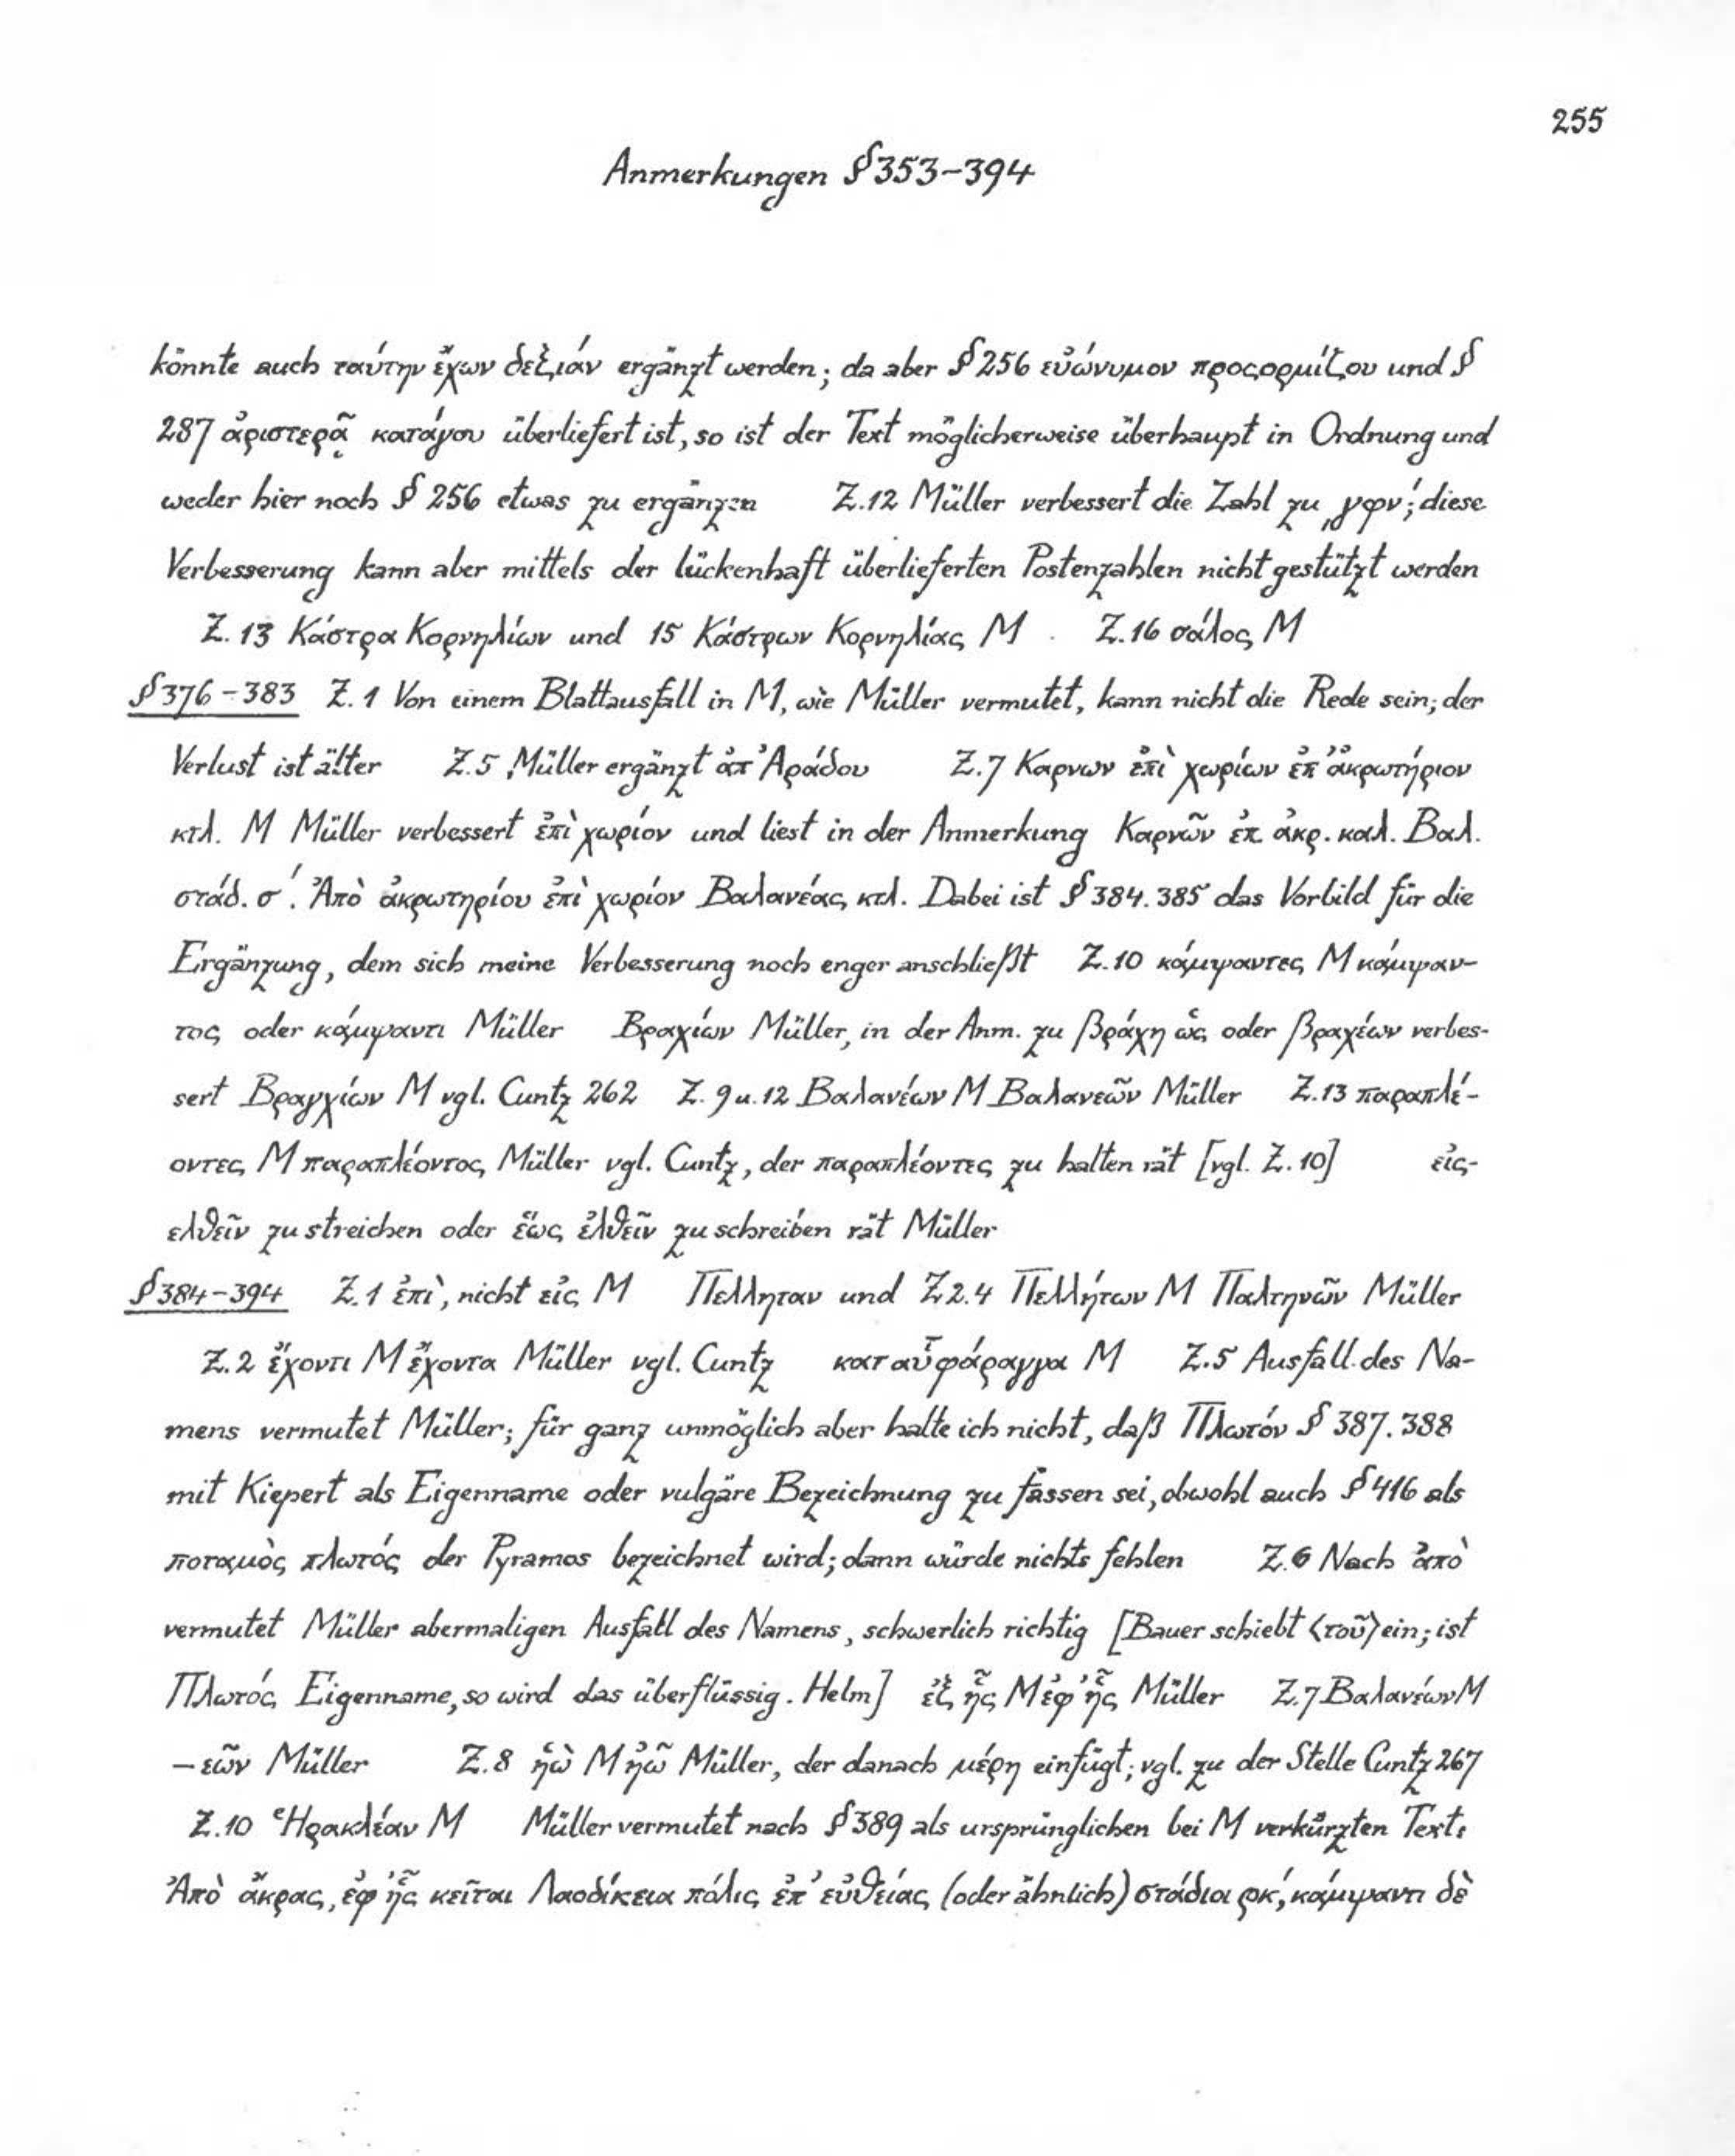 255
Anmerkungen §353-394
könnte auch ταύτην ἔχων δεξιάν ergänzt werden; da aber §256 εὐώνυμον προςορμίζου und §
287 ἀριστερᾷ κατάγου überliefert ist, so ist der Text möglicherweise überhaupt in Ordnung und
weder hier noch § 256 etwas zu ergänzen Z.12 Müller verbessert die Zahl zu ͵γφν΄; diese
Verbesserung kann aber mittels der lückenhaft überlieferten Postenzahlen nicht gestützt werden
Z. 13 Κάστρα Κορνηλίων und 15 Κάστρων Κορνηλίας M Z.16 σάλος M
§376-383 Z. 1 Von einem Blattausfall in M, wie Müller vermutet, kann nicht die Rede sein; der
Verlust ist älter Z.5 Müller ergänzt ἀπ' Ἀράδου Z.7 Καρνων ἐπὶ χωρίων ἐπ' ἀκρωτήριον
κτλ. M Müller verbessert ἐπὶ χωρίον und liest in der Anmerkung Καρνῶν ἐπ. ἀκρ. καλ. Βαλ.
στάδ. σ΄. Ἀπὸ ἀκρωτηρίου ἐπὶ χωρίον Βαλανέας κτλ. Dabei ist §384. 385 das Vorbild für die
Ergänzung, dem sich meine Verbesserung noch enger anschließt Z.10 κάμψαντες M κάμψαν-
τος oder κάμψαντι Müller Βραχίων Müller, in der Anm. zu βράχη ὡς oder βραχέων verbes-
sert Βραγχίων M vgl. Cuntz 262 Z. 9 u. 12 Βαλανέων M Βαλανεῶν Müller Z.13 παραπλέ-
οντες M παραπλέοντος Müller vgl. Cuntz, der παραπλέοντες zu halten rät [vgl. Z. 10] εἰς-
ελθεῖν zu streichen oder ἕως ἐλθεῖν zu schreiben rät Müller
§384-394 Z. 1 ἐπὶ, nicht εἰς M Πελληταν und Z 2.4 Πελλήτων M Παλτηνῶν Müller
Z. 2 ἔχοντι M ἔχοντα Müller vgl. Cuntz καταὐφάραγγα M Z.5 Ausfall des Na-
mens vermutet Müller; für ganz unmöglich aber halte ich nicht, daß Πλωτόν § 387. 388
mit Kiepert als Eigenname oder vulgäre Bezeichnung zu fassen sei, obwohl auch §416 als
ποταμὸς πλωτός der Pyramos bezeichnet wird; dann würde nichts fehlen Z.6 Nach ἀπὸ
vermutet Müller abermaligen Ausfall des Namens, schwerlich richtig [Bauer schiebt ⟨τοῦ⟩ ein; ist
Πλωτός Eigenname, so wird das überflüssig. Helm] ἐξ ἧς M ἐφ' ἧς Müller Z.7 Βαλανέων M
-εῶν Müller Z.8 ἡὼ M ἠῶ Müller, der danach μέρη einfügt; vgl. zu der Stelle Cuntz 267
Z.10 Ἡρακλέαν M Müller vermutet nach §389 als ursprünglichen bei M verkürzten Text:
Ἀπὸ ἄκρας, ἐφ' ἧς κεῖται Λαοδίκεια πόλις ἐπ' εὐθείας (oder ähnlich) στάδιοι φκ΄, κάμψαντι δὲ